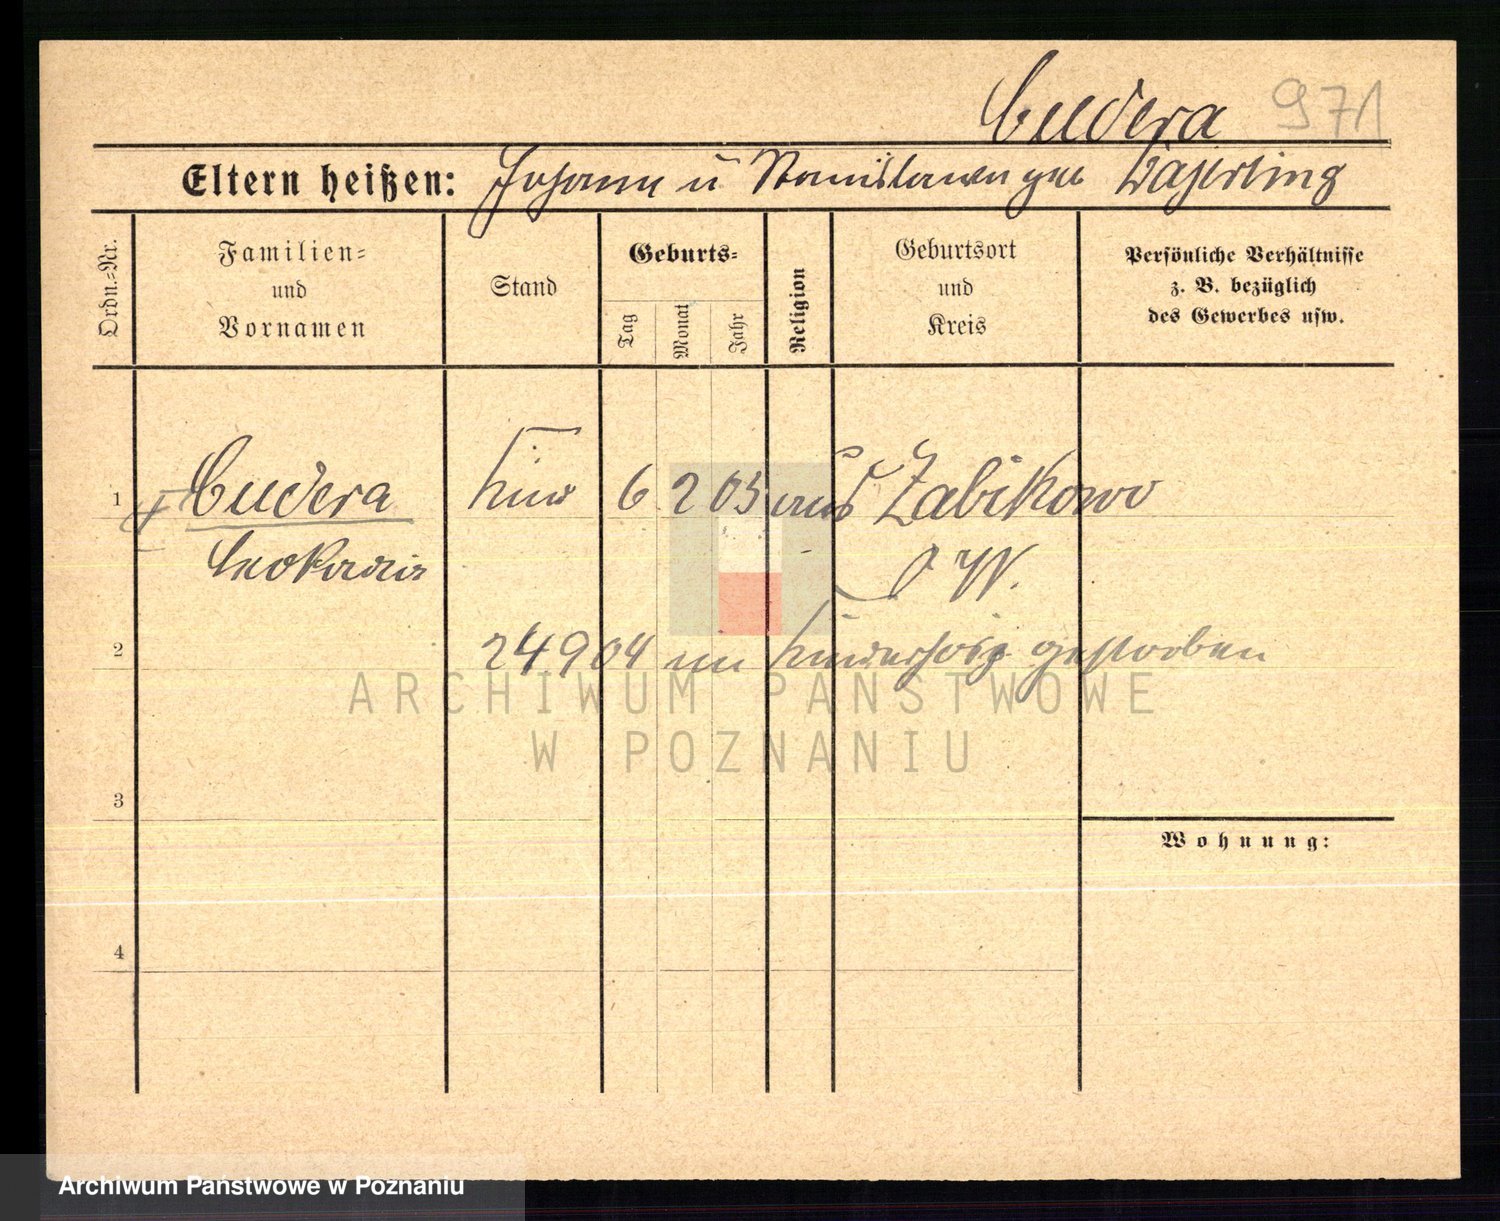 Cudera 971
Eltern heißen: Johann u Stanislawa geb
Ordn.-Nr.
Familien-
und
Vornamen
Stand
Geburts-
Tag
Monat
Jahr
Religion
Geburtsort
und
Kreis
Persönliche Verhältnisse
z. B. bezüglich
des Gewerbes usw.
1 Cudera Kind 6 2 03 aus Zabikowo
Leokadia P W.
2
24 9 04 im gestorben
ARCHIWUM PAŃSTWOWE
W POZNANIU
3
Wohnung:
4
Archiwum Państwowe w Poznaniu